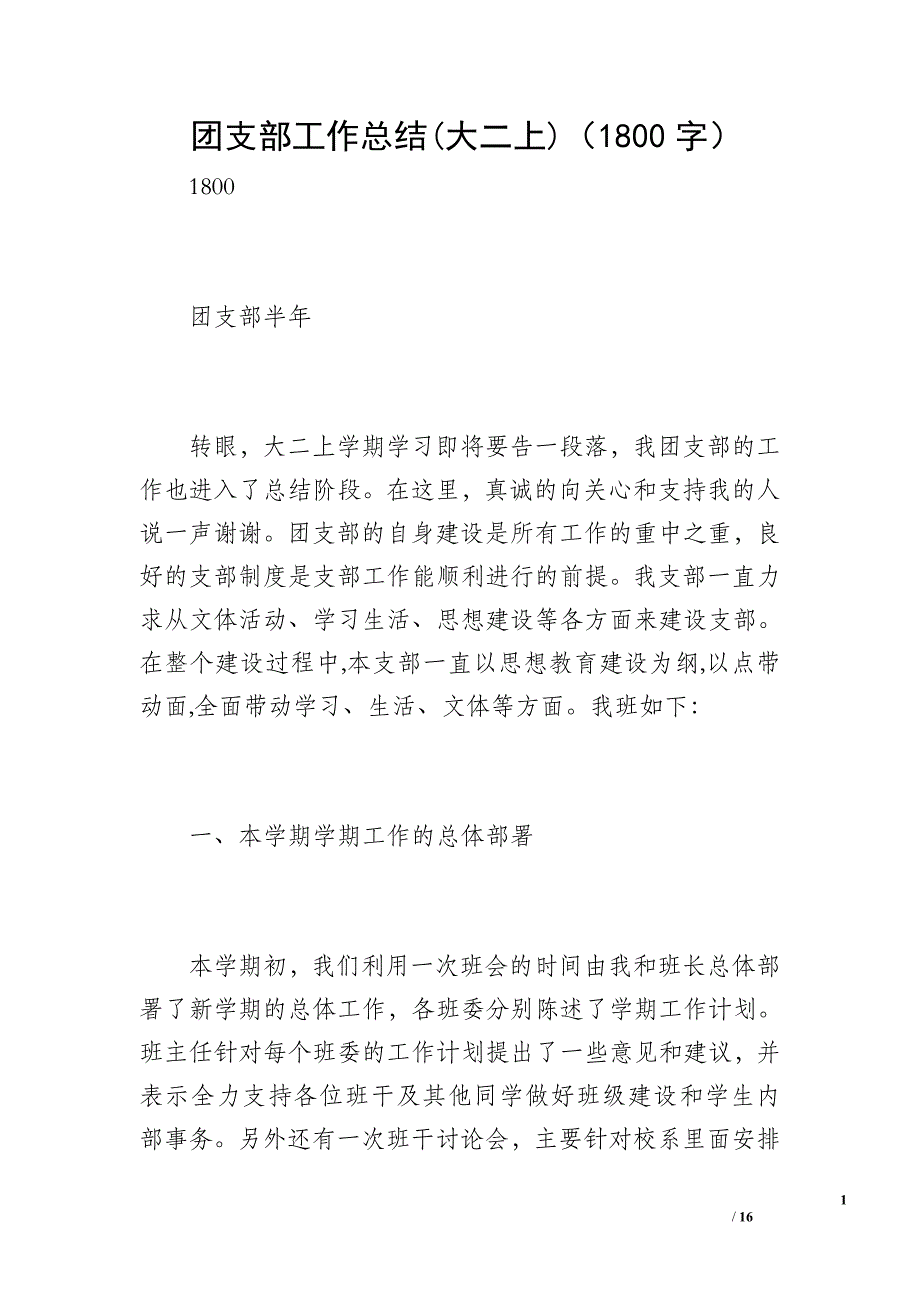 团支部工作总结(大二上)（1800 字）
1800
团支部半年
转眼，大二上学期学习即将要告一段落，我团支部的工
作也进入了总结阶段。在这里，真诚的向关心和支持我的人
说一声谢谢。团支部的自身建设是所有工作的重中之重，良
好的支部制度是支部工作能顺利进行的前提。我支部一直力
求从文体活动、学习生活、思想建设等各方面来建设支部。
在整个建设过程中,本支部一直以思想教育建设为纲,以点带
动面,全面带动学习、生活、文体等方面。我班如下：
一、本学期学期工作的总体部署
本学期初，我们利用一次班会的时间由我和班长总体部
署了新学期的总体工作，各班委分别陈述了学期工作计划。
班主任针对每个班委的工作计划提出了一些意见和建议，并
表示全力支持各位班干及其他同学做好班级建设和学生内
部事务。另外还有一次班干讨论会，主要针对校系里面安排
1
/ 16